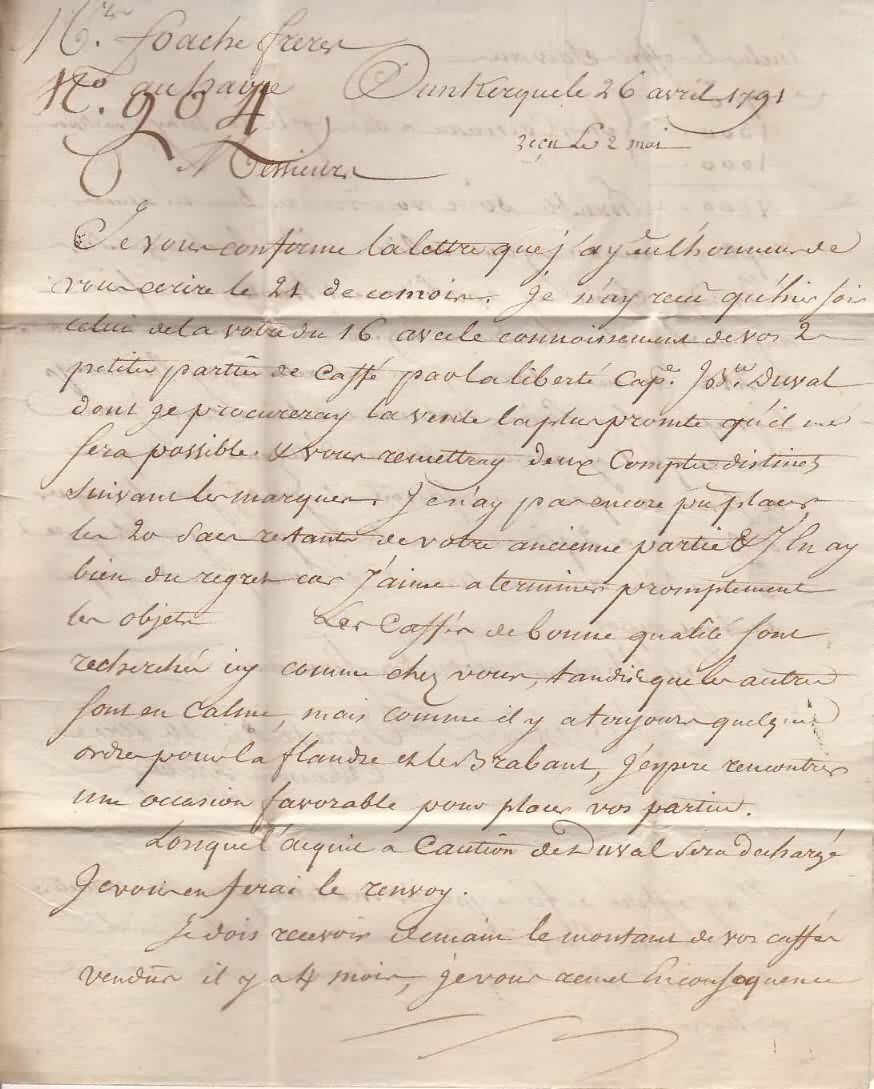 Mrs. foache freres
au havre
N° 204
Dunkerque le 26 avril 1791
reçu le 2 mai
Messieurs
Je vous confirme la lettre que j'ay eu l'honneur de
vous ecrire le 21 de ce mois. Je n'ay reçu qu'hier soir
celui de la votre du 16 avec le connoissement de vos 2
petites parties de caffé par la liberté Cape. J Bte. Duval
dont je procureray la vente la plus promte qu'il me
sera possible. & vous remettray deux Comptes distincts
suivant les marques. Je n'ay pas encore pû placer
les 20 sacs restants de votre ancienne partie & J'En ay
bien du regret car J'aime a terminer promptement
les objets Les Caffés de bonne qualité sont
recherchés icy comme chez vous, tandis que les autres
sont en calme, mais comme il y a toujours quelques
ordres pour la flandre et le Brabant, j'espere rencontrer
une occasion favorable pour placer vos parties.
Lorsque l'acquit a Caution de Duval sera dechargé
Je vous en ferai le renvoy.
Je dois recevoir demain le montant de vos caffés
vendûs il y a 4 mois, je vous remet En consequence